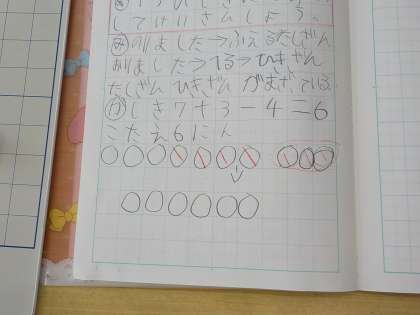 してけいさんしよう。
み のりました→ふえるたしざん
おりました→へる→ひきざん
たしざん ひきざん がまざっている
が しき 7+3-4=6
こたえ6にん